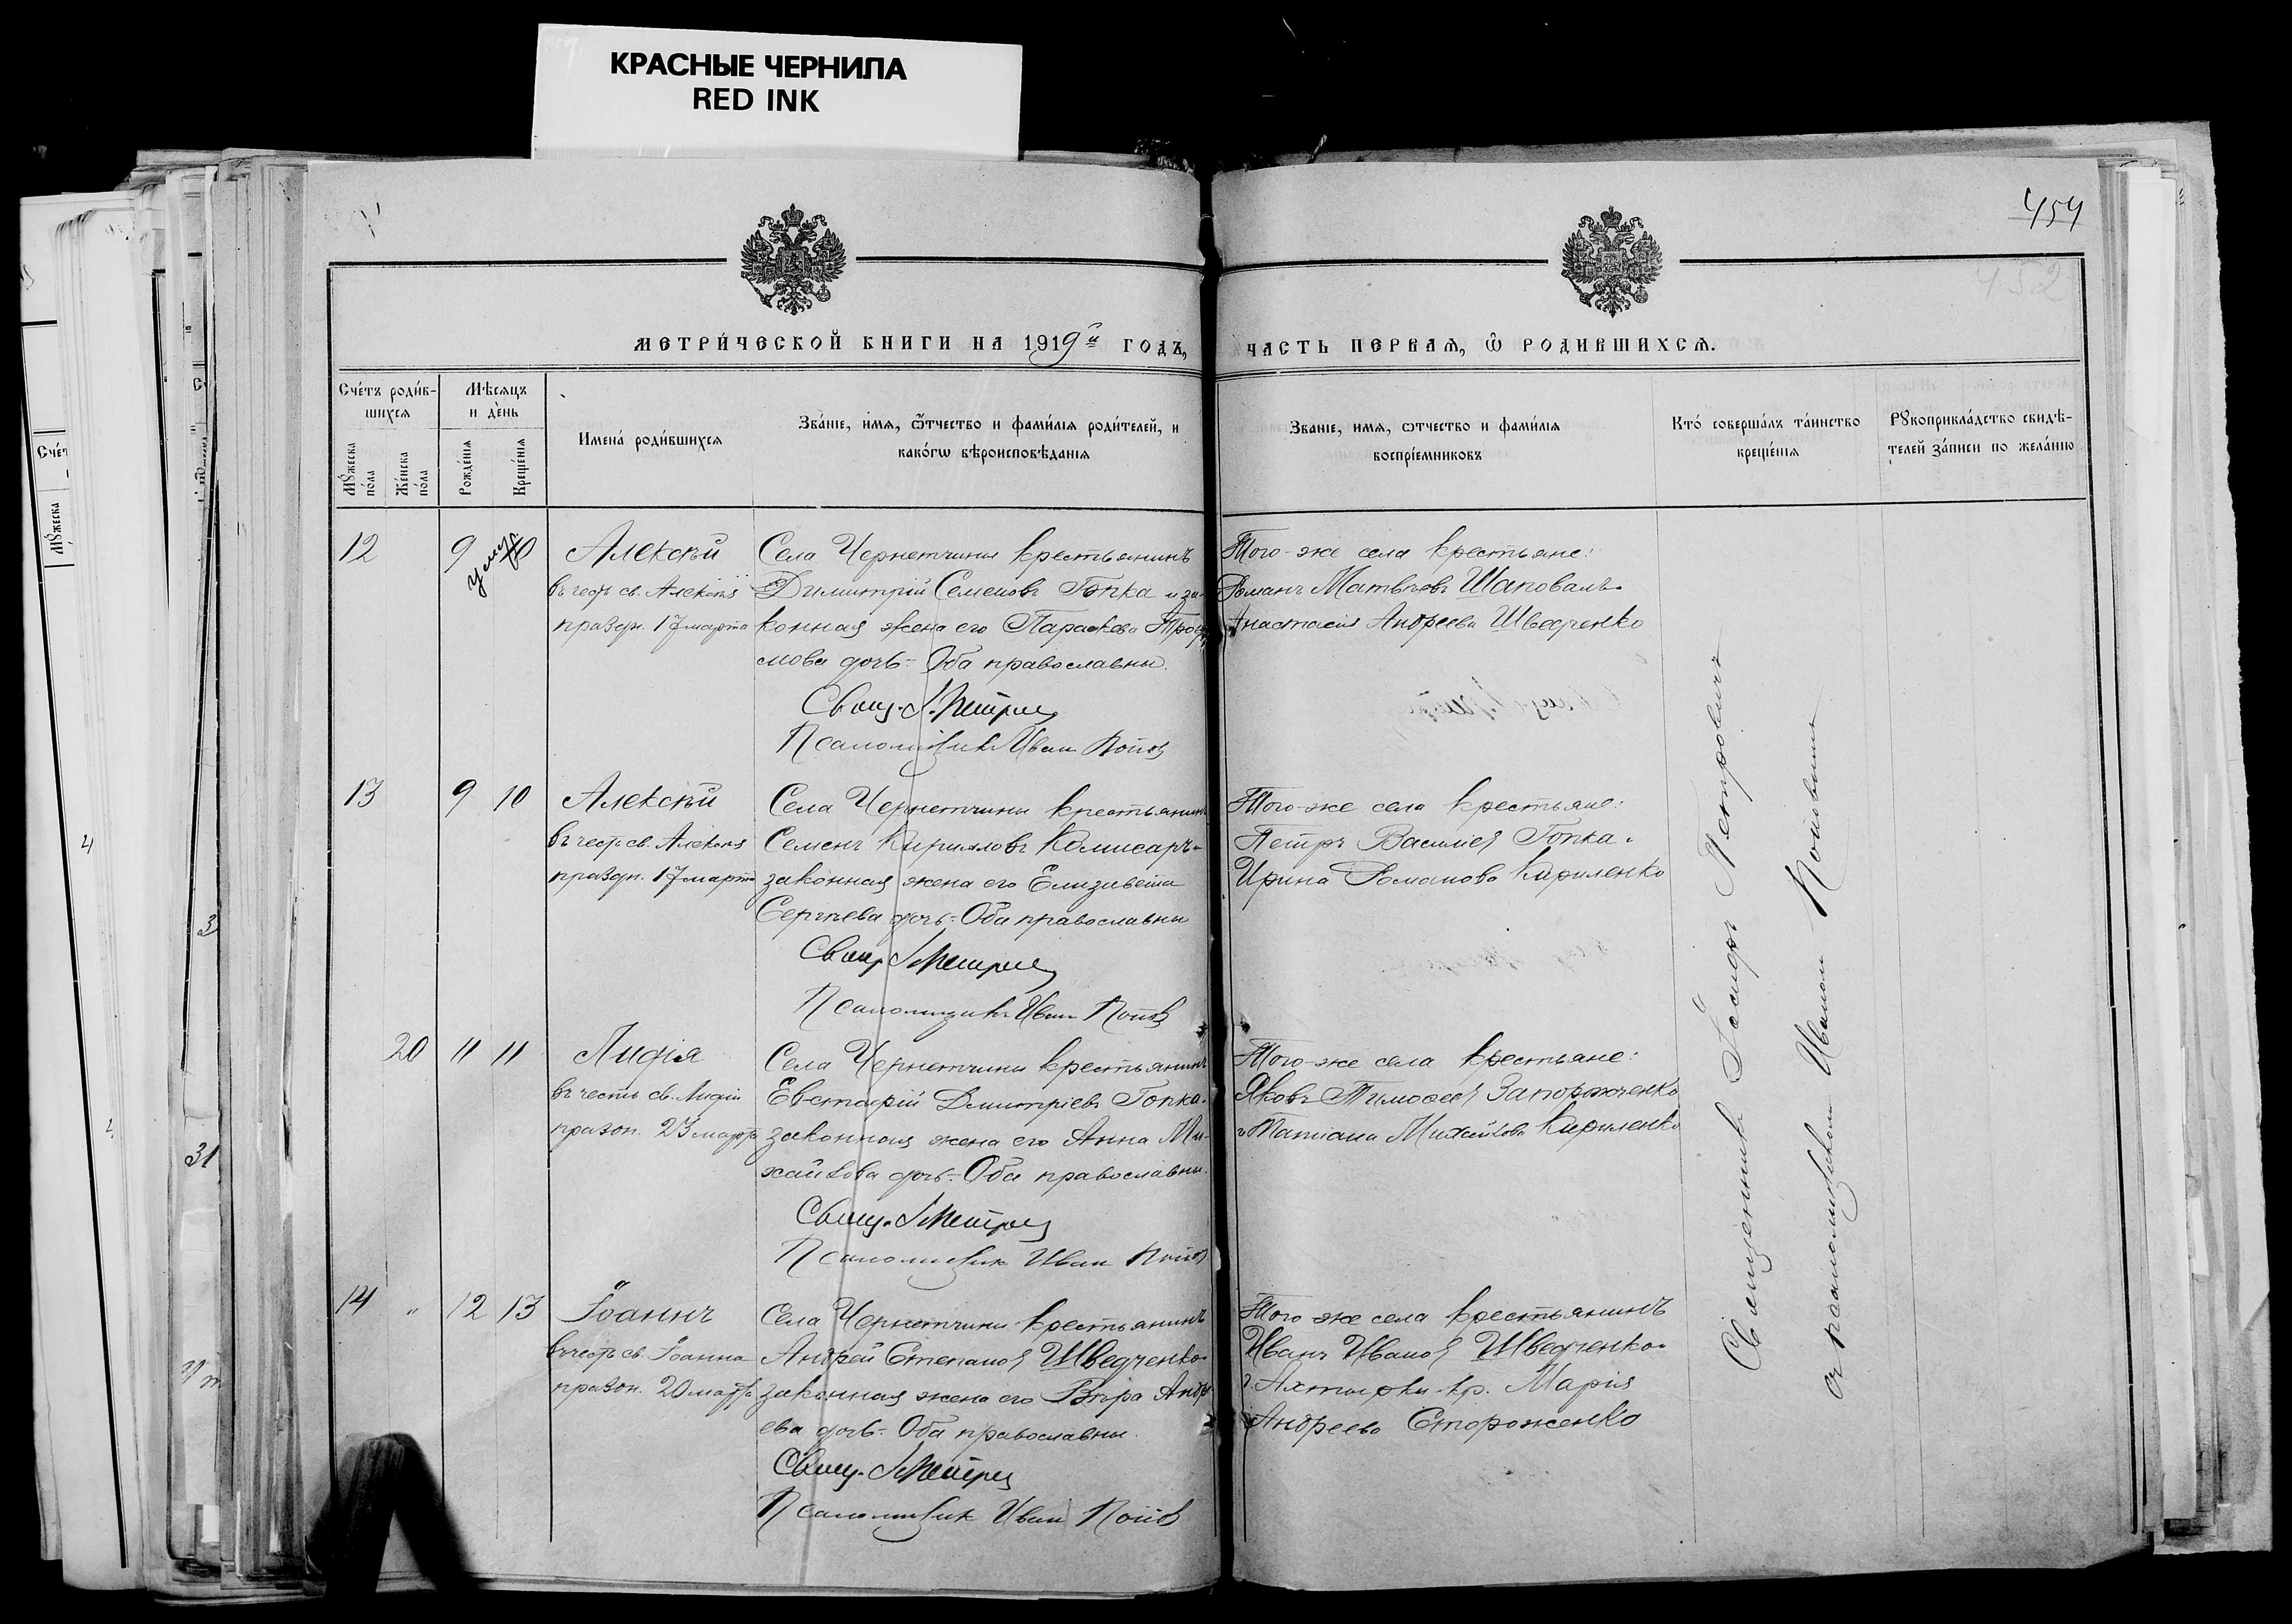 КРАСНЫЕ ЧЕРНИЛА
RED INK
454
452
МЕТРИ́ЧЕСКОЙ КНИГИ НА 1919й ГОДЪ,
ЧАСТЬ ПЕРВАѦ, Ѡ РОДИВШИХСѦ.
Сче́тъ роди́в-
шихсѧ
Мꙋ́жеска
по́ла
Же́нска
по́ла
Мѣ́сѧцъ
и де́нь
Рожде́нїѧ
Креще́нїѧ
Имена́ роди́вшихсѧ
Зва́нїе, и́мѧ, ѿтчество и фами́лїѧ роди́телей, и
како́гѡ вѣроисповѣ́данїѧ
Зва́нїе, и́мѧ, ѡтчество и фами́лїѧ
воспрїе́мниковъ
Кто́ соверша́лъ та́инство
креще́нїѧ
Рꙋкоприкла́дство свидѣ́-
телей за́писи по жела́нїю
12 9 10 Алексѣй
умер
въ честь св. Алексѣя
праздн. 17 марта
Села Чернетчины крестьянинъ
Димитрій Семеновъ Гопка и за-
конная жена его Параскева
мова дочь - Оба православны.
Свящ. І. Петров
Псаломщикъ Иван Попов
Того-же села крестьяне:
Романъ Матвѣевъ Шаповалъ
Анастасія Андреева Шведченко
13 9 10 Алексѣй
въ честь св. Алексѣя
праздн. 17 марта
Села Чернетчины крестьянинъ
Семенъ Кирилловъ Комисаръ и
законная жена его Елизавета
Сергѣева дочь - Оба православны
Свящ. І. Петров
Псаломщикъ Иван Попов
Того-же села крестьяне:
Петръ Василіев Гопка и
Ирина Романова Кириленко
20 11 11 Лидія
въ честь св. Лидіи
праздн. 23 марта
Села Чернетчины крестьянинъ
Евстафій Димитріевъ Гопка и
законная жена его Анна Ми-
хайлова дочь - Оба православны.
Свящ. І. Петров
Псаломщик Иван Попов
Того-же села крестьяне:
Яковъ Тимоѳеев Запорожченко
и Татіана Михайлова Кириленко
14 " 12 13 Іоаннъ
въ честь св. Іоанна
праздн. 20 марта
Села Чернетчины крестьянинъ
Андрей Степанов Шведченко и
законная жена его Вѣра Андре
ева дочь - Оба православны.
Свящ. І. Петров
Псаломщик Иван Попов
Того же села крестьянинъ
Иванъ Иванов Шведченко и
г. Ахтырки кр. Марія
Андреева Стороженко
Священникъ Іосифъ Петровичъ
съ псаломщиком Иваном Поповымъ